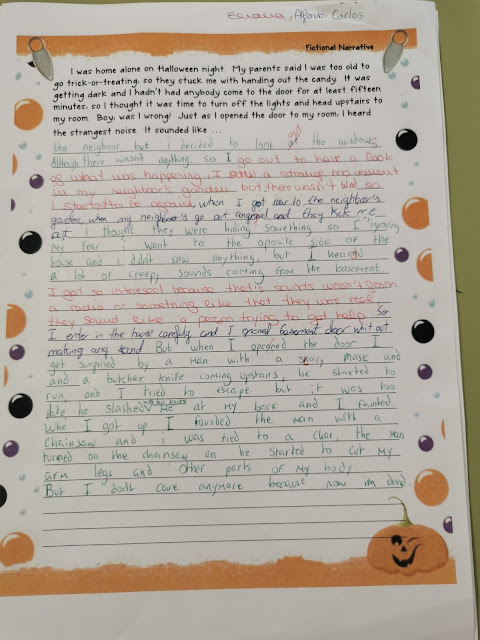 Carlos
Fictional Narrative
I was home alone on Halloween night. My parents said I was too old to
go trick-or-treating, so they stuck me with handing out the candy. It was
getting dark and I hadn't had anybody come to the door for at least fifteen
minutes, so I thought it was time to turn off the lights and head upstairs to
my room. Boy, was I wrong! Just as I opened the door to my room, I heard
the strangest noise. It sounded like ...
the neigboor but i decided to look out the windows
Althought there wasn't anything so I go out to have a look
of what was happening, I saw a strange movement
in my neighbor's but, there wasn't wind so
I to be afraid, when I got near to the neighbor's
garden, my neighbor's go out and they kick me
out. I thought they were hiding something so I ignoring
My fear i went to the oposite side of the
house and i didn't saw anything, but I heared
a lot of creepy sounds coming from the basement
I got so because that's sounds wasn't from
a radio or something like that they were real
they sound like a person trying to get help So
I enter in the house carefuly and I opened basement door whit out
making any sound But when I opcaned the door I
get surprised by a man with a scary mask and
and a butcher knife coming upstairs, he started to
run, and I tried to escape but it was too
late he slashed me at my back and I fainted
whe I got up I the man with a
chainsaw and i was tied to a chair, the man
turned on the chainsaw an he started to cut my
arm legs and other parts of my body.
But I don't care anymore because now im dead.